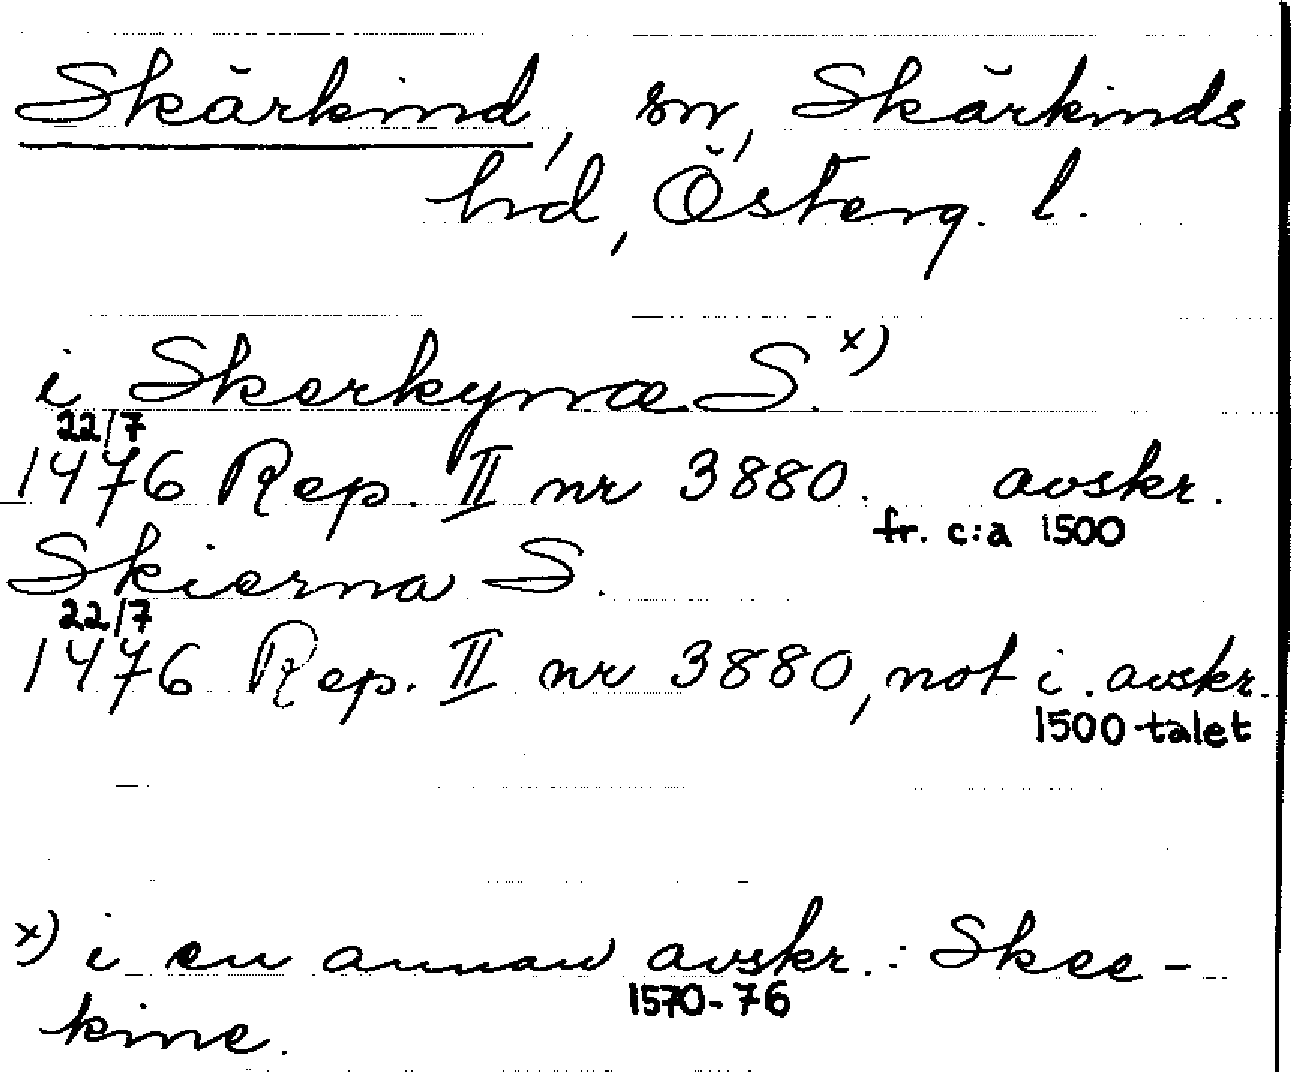 Skärkind, sn, Skärkinds
hd, Österg. l.
i Skerkynæ S. x)
22/7
1476 Rep. II nr 3880. avskr.
fr. c:a 1500
Skierna S.
22/7
1476 Rep. II nr 3880, not i avskr.
1500-talet
x) i en annan avskr.: Skee-
1570-76
kine.